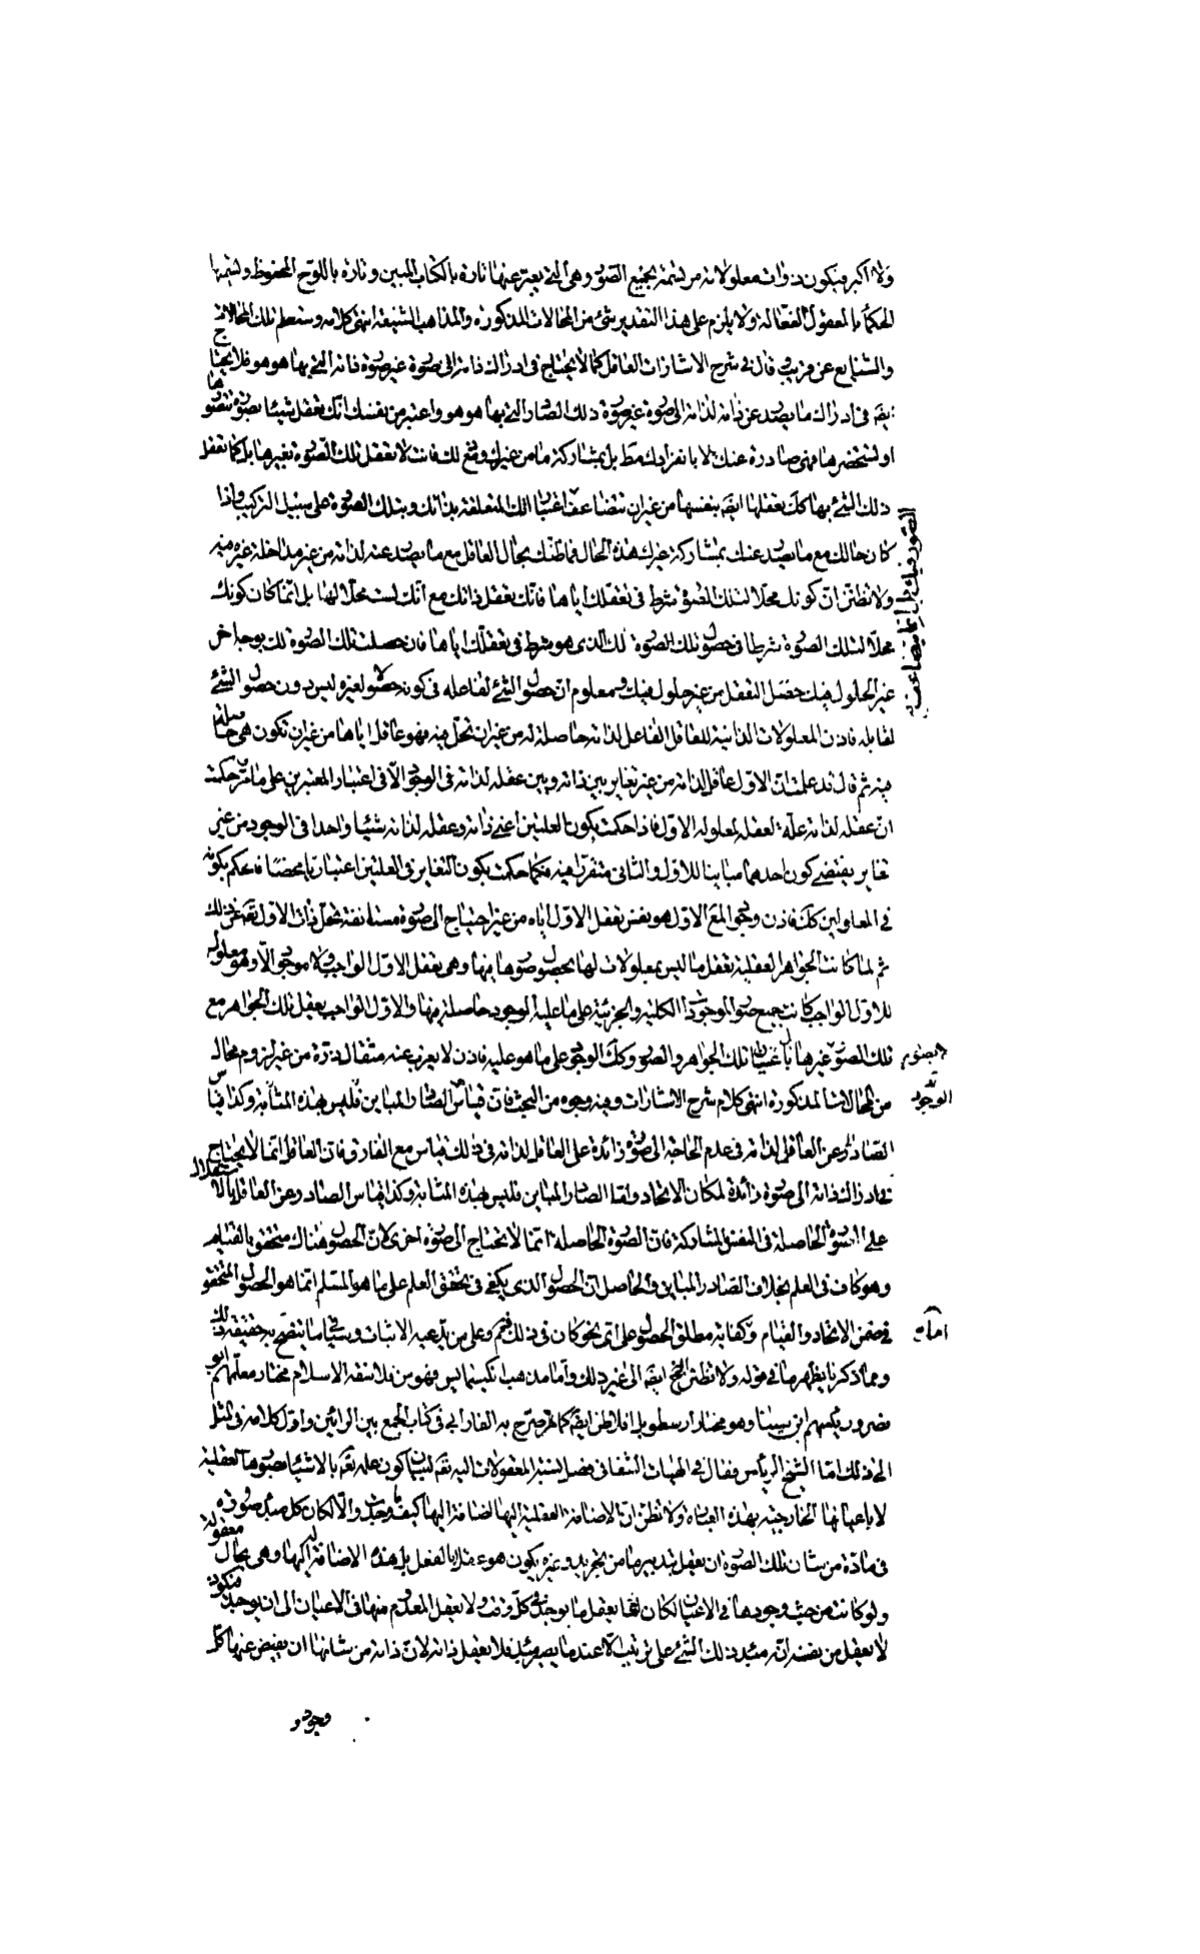 ولا اكبر فيكون ذوات معلولاته مرتسمة بجميع الصور وهي التي يعبر عنها تارة بالكتاب المبين وتارة باللوح المحفوظ ويسميها
الحكماء بالعقول الفعالة ولا يلزم على هذا التقدير شئ من المحالات المذكورة والمذاهب الشنيعة انتهى كلامه وستعلم تلك المحالات
والشنايع عن قريب وقال في شرح الاشارات العاقل كما لا يحتاج في ادراك ذاته الى صورة غير صورة ذاته التي بها هو هو فلا يحتاج
ايضا في ادراك ما يصدر عن ذاته لذاته الى صورة غير صورة ذلك الصادر التي بها هو هو واعتبر من نفسك انك تعقل شيئا بصورة تتصورها
او تستحضرها فهي صادرة عنك لا بانفرادك مط بل بمشاركة ما من غيرك ومع ذلك فانت لا تعقل تلك الصورة بغيرها بل كما تعقل
ذلك الشئ بها كك تعقلها ايضا بنفسها من غير ان تتضاعف اعتباراتك المتعلقة بذاتك وبتلك الصورة على سبيل التركيب واذا
كان حالك مع ما يصدر عنك بمشاركة غيرك هذه الحال فما ظنك بحال العاقل مع ما يصدر عنه لذاته من غير مداخلة غيره فيه
ولا تظنن ان كونك محلا لتلك الصورة شرط في تعقلك اياها فانك تعقل ذاتك مع انك لست محلا لها بل انما كان كونك
محلا لتلك الصورة شرطا في حصول تلك الصورة لك الذي هو شرط في تعقلك اياها فان حصلت تلك الصورة لك بوجه اخر
غير الحلول فيك حصل التعقل من غير حلول فيك ومعلوم ان حصول الشئ لفاعله في كونه حصولا لغيره ليس دون حصول الشئ
لقابله فاذن المعلولات الذاتية للعاقل الفاعل لذاته حاصلة له من غير ان تحل فيه فهو عاقل اياها من غير ان تكون هي حالة
فيه ثم قال قد علمت ان الاول عاقل لذاته من غير تغاير بين ذاته وبين عقله لذاته في الوجود الا في اعتبار المعتبرين على ما مر حكمت
ان عقله لذاته علة لعقله لمعلوله الاول فاذا حكمت بكون العلتين اعني ذاته وعقله لذاته شيئا واحدا في الوجود من غير
تغاير يقتضي كون احدهما مباينا للاول والثاني متقررا فيه فكما حكمت بكون التغاير في العلتين اعتباريا محضا فاحكم بكونه
في المعلولين كك فاذن وجود المع الاول هو نفس تعقل الاول اياه من غير احتياج الى صورة مستانفة تحل ذات الاول تعم عن ذلك
ثم لما كانت الجواهر العقلية تعقل ما ليس بمعلولات لها بحصول صورها فيها وهي تعقل الاول الواجب ولا موجود الا وهو معلول
للاول الواجب كانت جميع صور الموجودات الكلية والجزئية على ما عليه الوجود حاصلة فيها والاول الواجب يعقل تلك الجواهر مع
تلك الصور لا بصور غيرها بل باعيان تلك الجواهر والصور وكك الوجود على ما هو عليه فاذن لا يعزب عنه مثقال ذرة من غير لزوم محال
من المحالات المذكورة انتهى كلام شرح الاشارات وفيه وجوه من البحث فان قياس الصادر المباين فليس بهذه المثابة وكذا قياس
الصادر عن العاقل لذاته في عدم الحاجة الى صورة زائدة على العاقل لذاته في ذلك قياس مع الفارق فان العاقل انما لا يحتاج
في ادراك ذاته الى صورة زائدة لمكان الاتحاد واما الصادر المباين فليس بهذه المثابة وكذا قياس الصادر عن العاقل بالاستقلال
على الصورة الحاصلة في النفس بالمشاركة فان الصورة الحاصلة انما لا تحتاج الى صورة اخرى لان الحصول هناك متحقق بالقيام
وهو كاف في العلم بخلاف الصادر المباين والحاصل ان الحصول الذي يكفي في تحقق العلم على ما هو المسلم انما هو الحصول المتحقق
في ضمن الاتحاد والقيام وكفاية مطلق الحصول على اي نحو كان في ذلك فمم وعلى من يدعيه الاثبات وسيجئ ما يتضح به حقيقة ذلك
ومما ذكرنا يظهر ما في قوله ولا تظنن الخ ايضا الى غير ذلك واما مذهب انكسيمايس فهو من فلاسفة الاسلام مختار معلمهم ابو
نصر ورئيسهم ابن سينا وهو مختار ارسطو بل افلاطن ايضا كما صرح به الفارابي في كتاب الجمع بين الرائين واول كلامه في المثل
الى ذلك اما الشيخ الرئيس فقال في الهيات الشفا في فصل نسبة المعقولات اليه تعم لبيان كون علمه تعم بالاشياء بصورها العقلية
لا باعيانها الخارجية بهذه العبارة ولا تظن ان الاضافة العقلية اليها اضافة اليها كيف وجدت والا لكان كل مبدء صورة
في مادة من شان تلك الصورة ان تعقل بتدبير ما من تجريد وغيره يكون هو عقلا بالفعل بل هذه الاضافة له اليها وهي بحال معقولة
ولو كانت من حيث وجودها في الاعيان لكان انما يعقل ما يوجد في كل وقت ولا يعقل المعدوم منها في الاعيان الى ان يوجد فيكون
لا يعقل من نفسه انه مبدء ذلك الشئ على ترتيب الا عند ما يصير مبدء فلا يعقل ذاته لان ذاته من شانها ان يفيض عنها كل
وجود و
الوجود